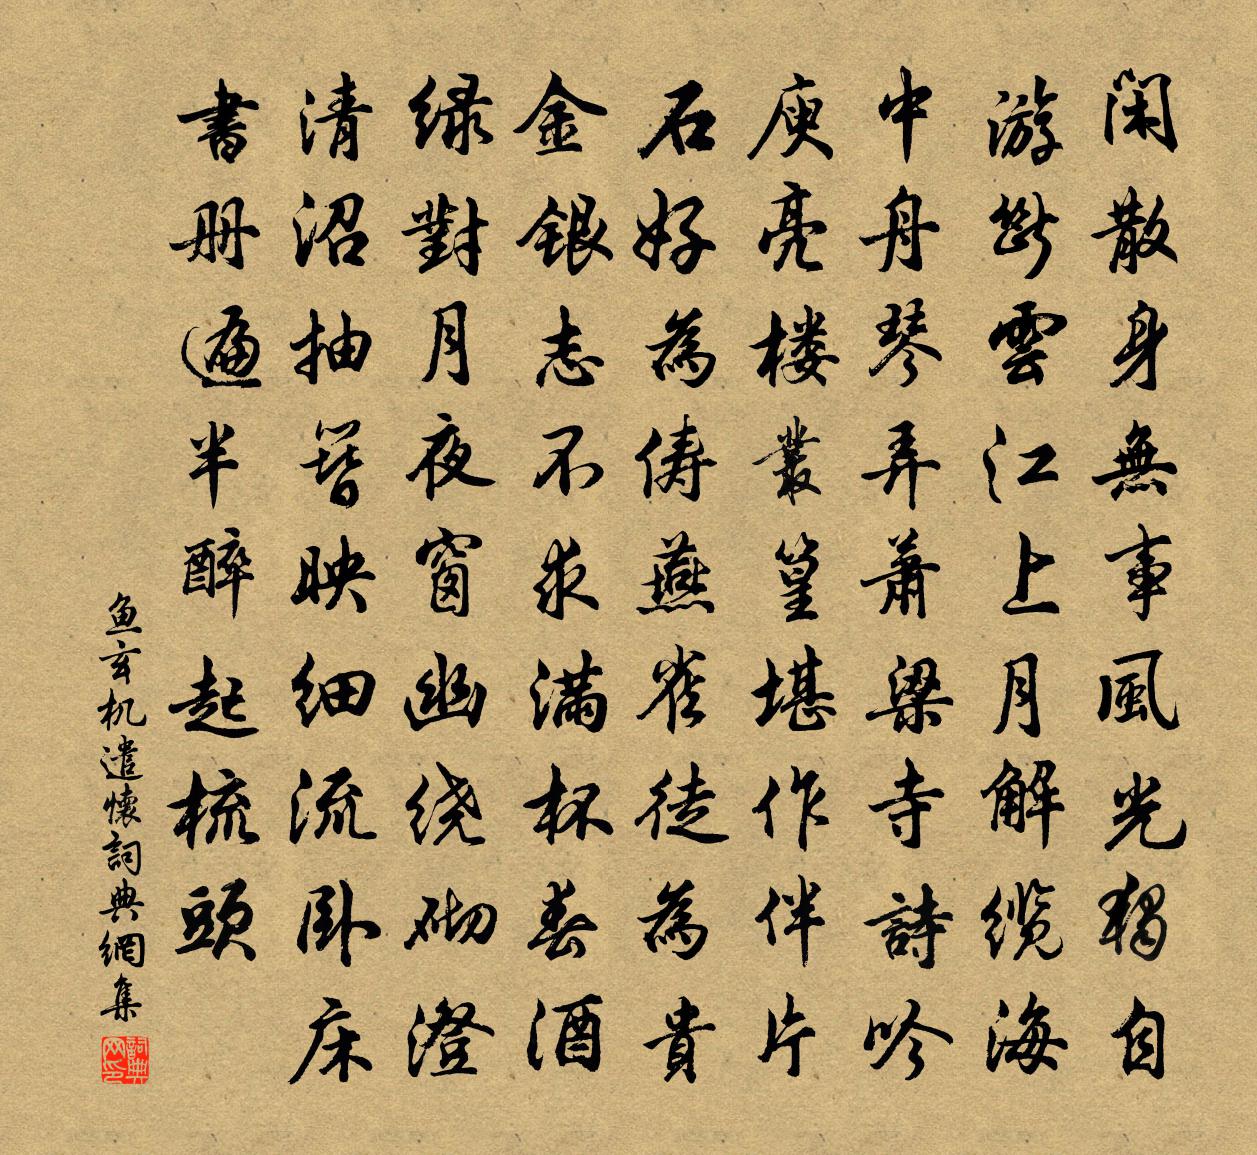 閑散身無事風光獨自
游斷雲江上月解纜海
中舟琴弄蕭梁寺詩吟
庾亮楼叢篁堪作伴片
石好為儔燕雀徒為貴
金銀志不求滿杯春酒
綠對月夜窗幽繞砌澄
清沼抽簪映細流卧床
書册遍半醉起梳頭
鱼玄机遣懷詞典網集
詞典网印